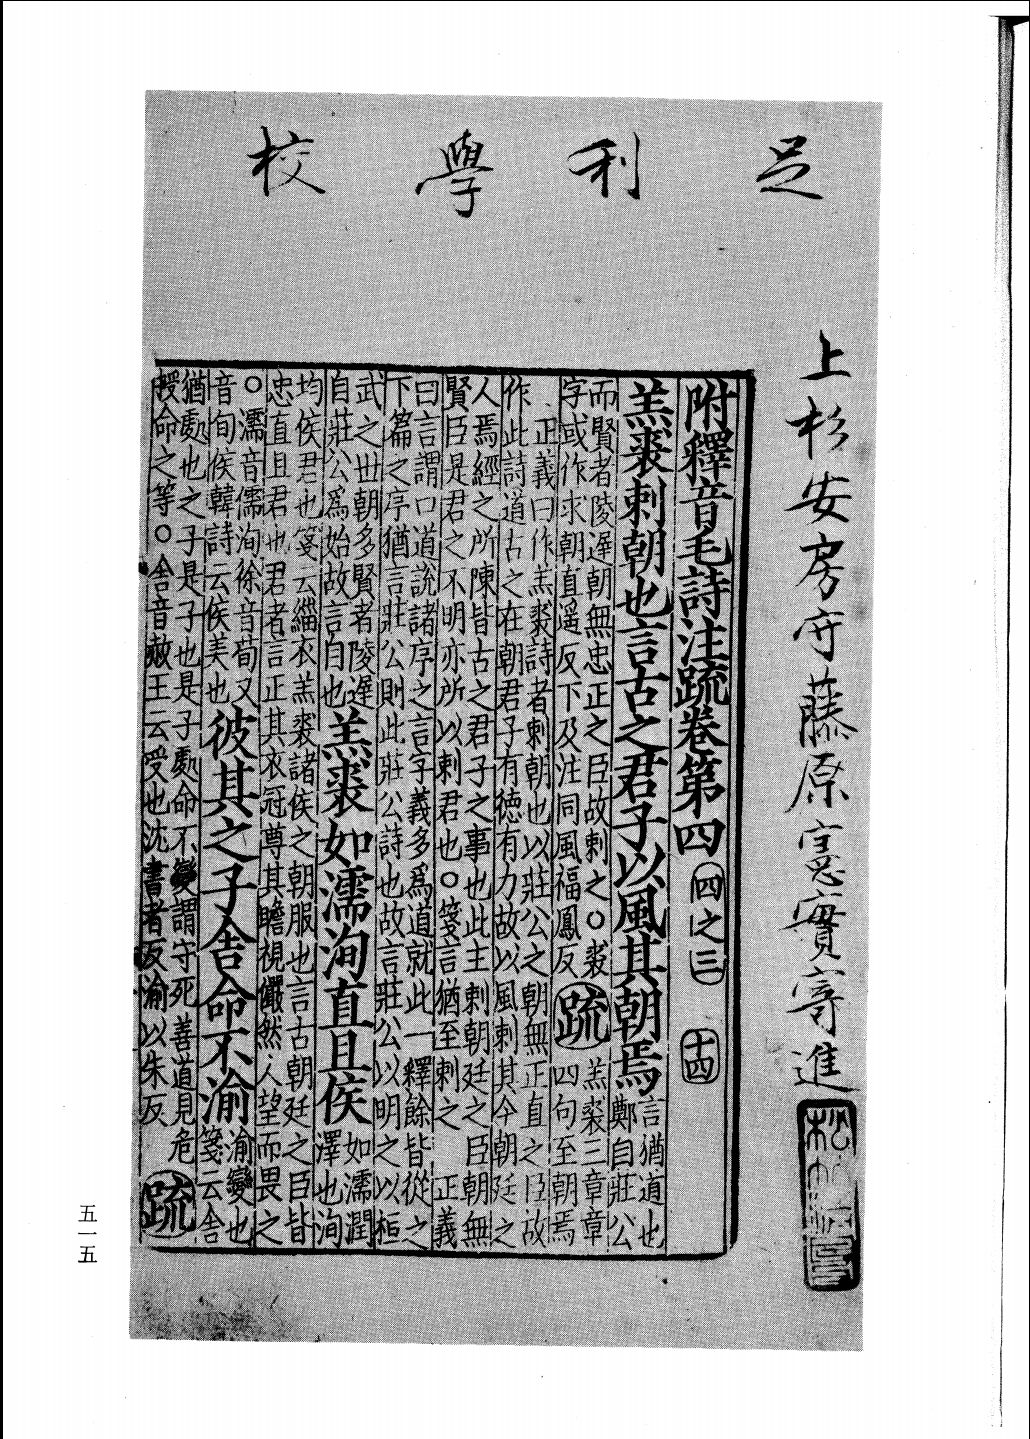 足利學校
上杉安房守藤原憲實寄進
松竹清風
附釋音毛詩注疏卷第四 四之三 十四
羔裘刺朝也言古之君子以風其朝焉
言猶道也
鄭自莊公
而賢者陵遲朝無忠正之臣故刺之○裘
字或作求朝直遥反下及注同風福鳳反
疏
羔裘三章章
四句至朝焉
正義曰作羔裘詩者刺朝也以莊公之朝無正直之臣故
作此詩道古之在朝君子有德有力故以風刺其今朝廷之
人焉經之所陳皆古之君子之事也此主刺朝廷之臣朝無
賢臣是君之不明亦所以刺君也○箋言猶至刺之 正義
曰言謂口道說諸序之言字義多爲道就此一釋餘皆從之
下篇之序猶言莊公則此莊公詩也故言莊公以明之以桓
武之世朝多賢者陵遲
自莊公爲始故言自也
羔裘如濡洵直且侯
如濡潤
澤也洵
均侯君也箋云緇衣羔裘諸侯之朝服也言古朝廷之臣皆
忠直且君也君者言正其衣冠尊其瞻視儼然人望而畏之
○濡音儒洵徐音荀又
音旬侯韓詩云侯美也
彼其之子舍命不渝
渝變也
箋云舍
猶處也之子是子也是子處命不變謂守死善道見危
授命之等○舍音赦王云受也沈書者反渝以朱反
疏
五一五